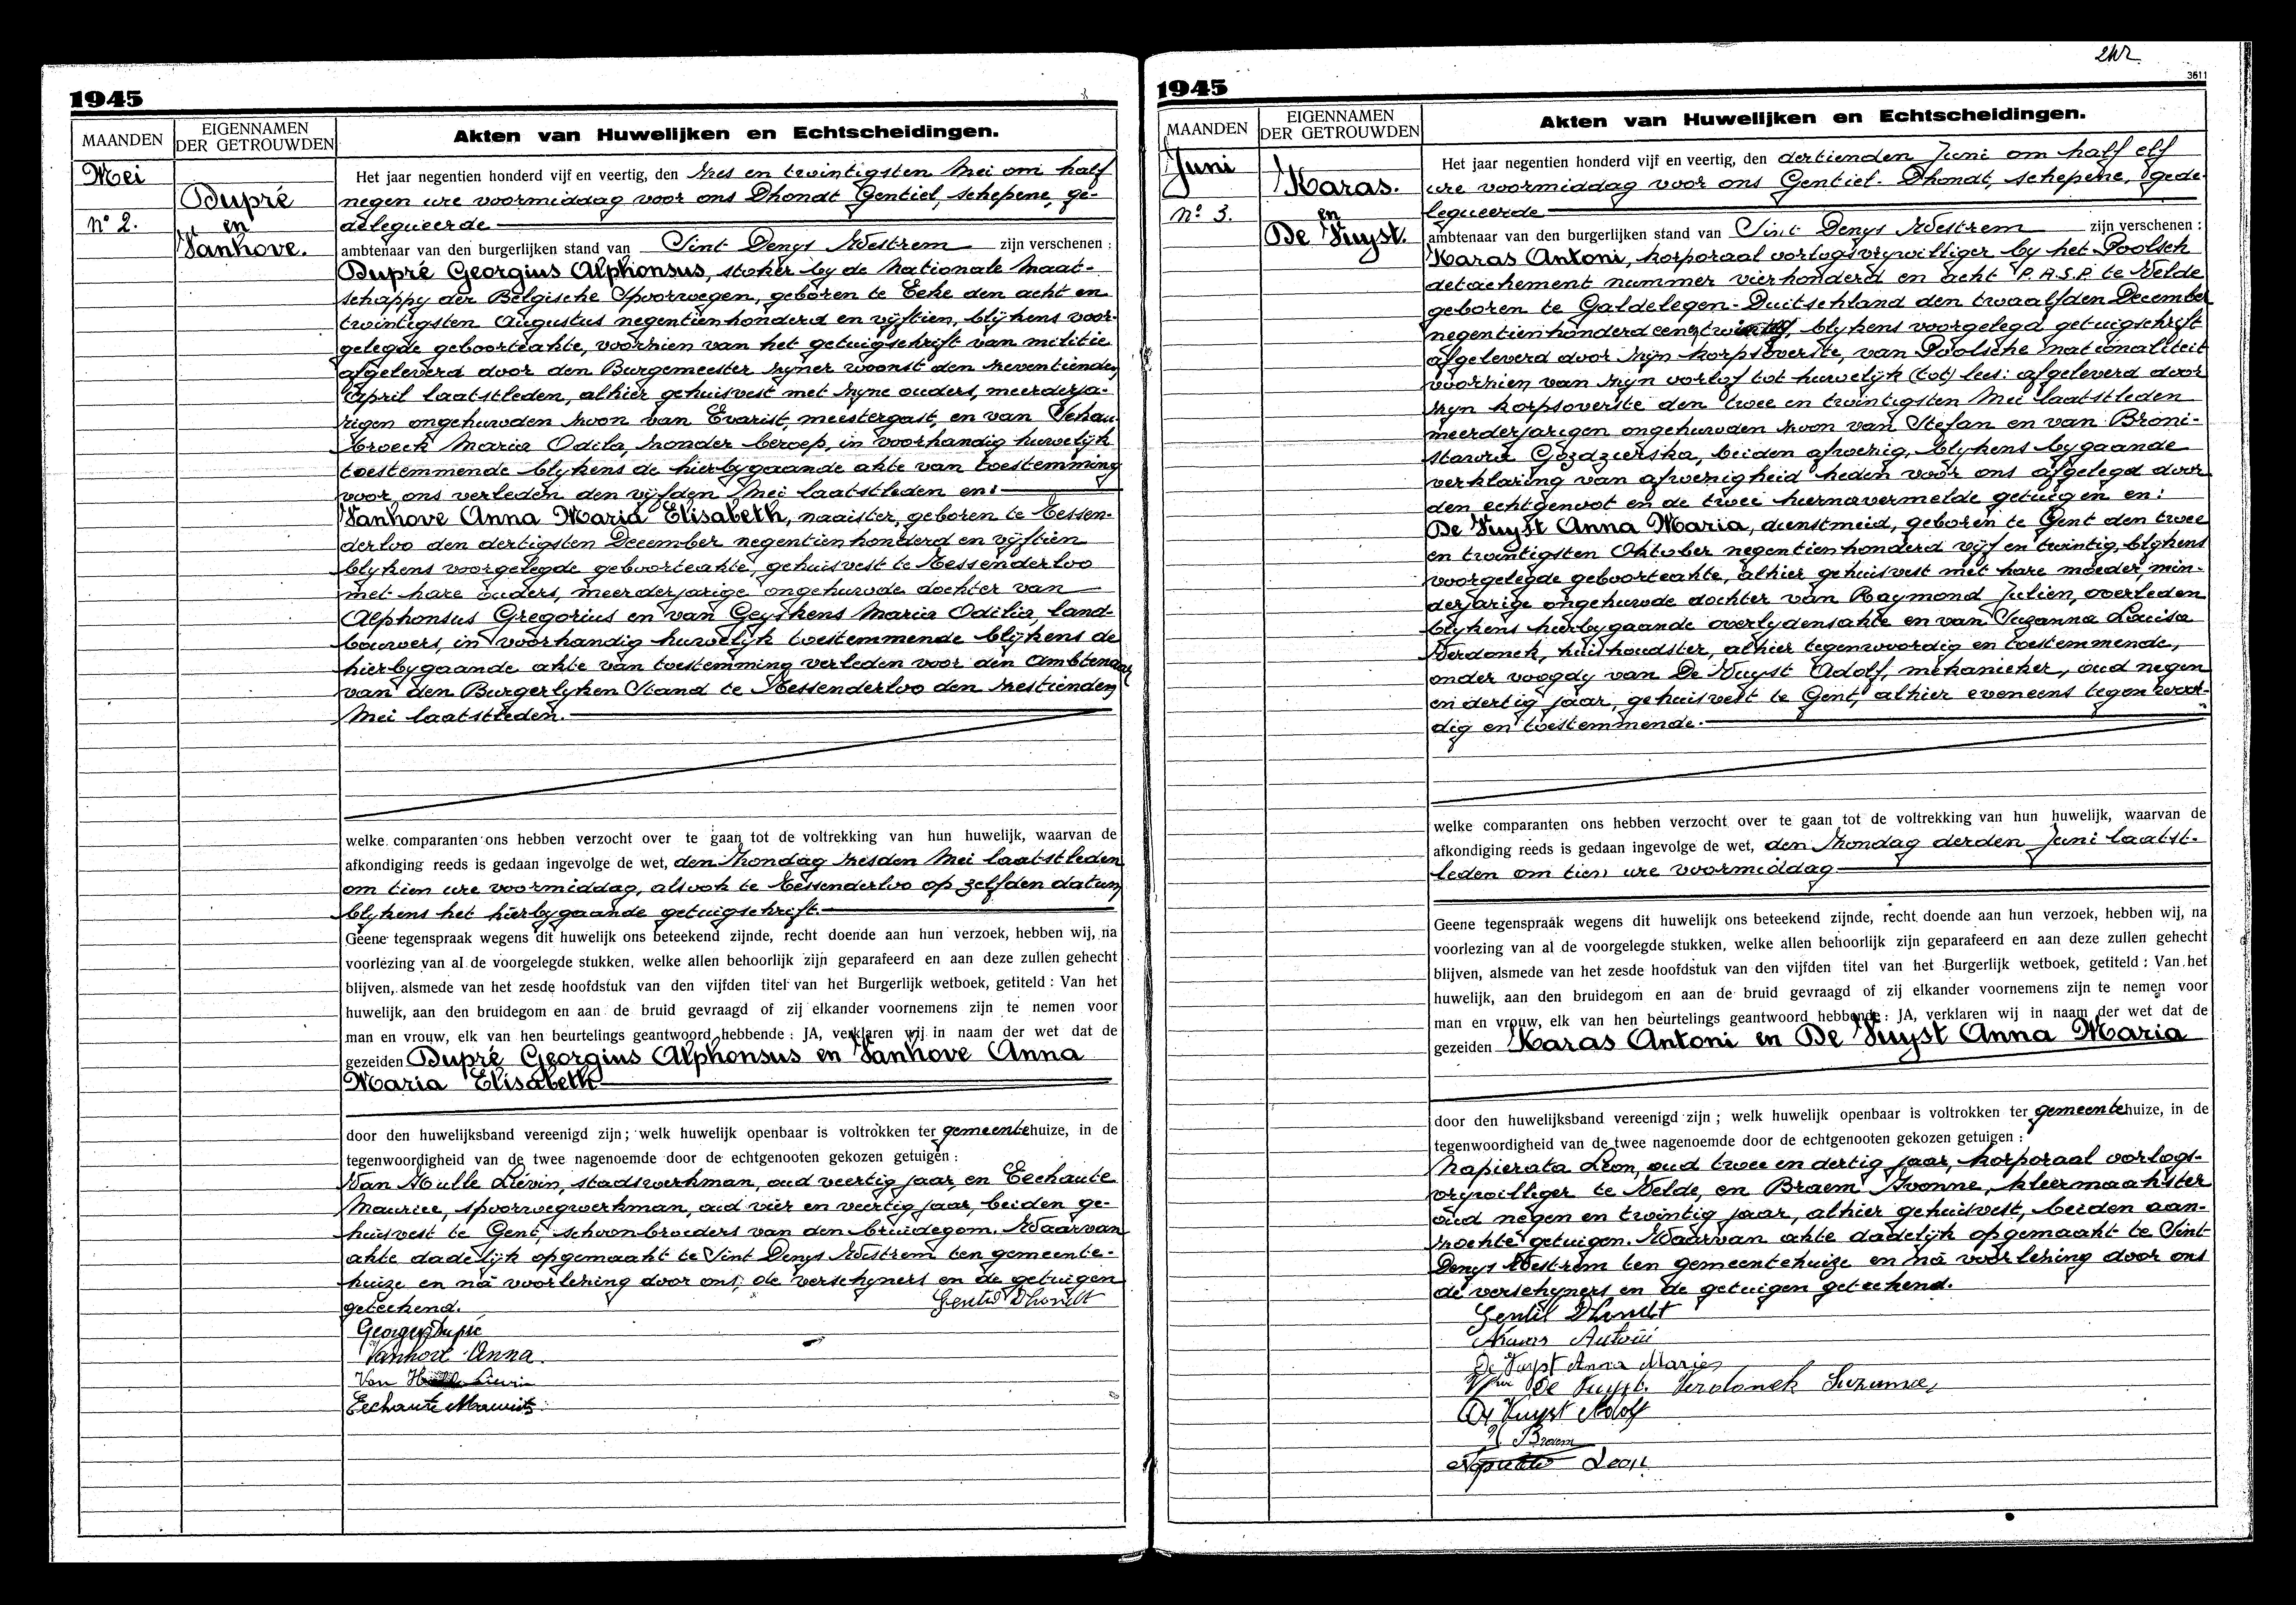 1945
MAANDEN
EIGENNAMEN
DER GETROUWDEN
Akten van Huwelijken en Echtscheidingen.
Mei
Dupré
nº 2.
en
Vanhove.
Het jaar negentien honderd vijf en veertig, den zes en twintigsten Mei om half
negen ure voormiddag voor ons Dhondt Gentiel, schepene, ge-
delegueerde
ambtenaar van den burgerlijken stand van Sint Denys Westrem zijn verschenen :
Dupré Georgius Alphonsus, stoker by de Nationale Maat-
schappy der Belgische Spoorwegen, geboren te Eeke den acht en
twintigsten Augustus negentienhonderd en vijftien, blijkens voor-
gelegde geboorteakte, voorzien van het getuigschrift van militie
afgeleverd door den Burgemeester zyner woonst den zeventienden
April laatstleden, alhier gehuisvest met zyne ouders, meerderja-
rigen ongehuwden zoon van Evarist, meestergast, en van
broeck Maria Odila, zonder beroep, in voorhandig huwelijk
toestemmende blykens de hierbygaande akte van toestemming
voor ons verleden den vijfden Mei laatstleden en:
Vanhove Anna Maria Elisabeth, naaister, geboren te Tessen-
derloo den dertigsten December negentienhonderd en vijftien
blykens voorgelegde geboorteakte, gehuisvest te Tessenderloo
met hare ouders, meerderjarige ongehuwde dochter van
Alphonsus Gregorius en van Geyskens Maria Odilia, land-
bouwers, in voorhandig huwelijk toestemmende blijkens de
hierbygaande akte van toestemming verleden voor den Ambtenaar
van den Burgerlyken Stand te Tessenderloo den zestienden
Mei laatstleden.
welke comparanten ons hebben verzocht over te gaan tot de voltrekking van hun huwelijk, waarvan de
afkondiging reeds is gedaan ingevolge de wet, den Zondag zesden Mei laatstleden
om tien ure voormiddag, alsook te Tessenderloo op zelfden datum
blykens het hierbygaande getuigschrift.
Geene tegenspraak wegens dit huwelijk ons beteekend zijnde, recht doende aan hun verzoek, hebben wij, na
voorlezing van al de voorgelegde stukken, welke allen behoorlijk zijn geparafeerd en aan deze zullen gehecht
blijven, alsmede van het zesde hoofdstuk van den vijfden titel van het Burgerlijk wetboek, getiteld : Van het
huwelijk, aan den bruidegom en aan de bruid gevraagd of zij elkander voornemens zijn te nemen voor
man en vrouw, elk van hen beurtelings geantwoord hebbende : JA, verklaren wij in naam der wet dat de
gezeiden Dupré Georgius Alphonsus en Vanhove Anna
Maria Elisabeth
door den huwelijksband vereenigd zijn ; welk huwelijk openbaar is voltrokken ter gemeentehuize, in de
tegenwoordigheid van de twee nagenoemde door de echtgenooten gekozen getuigen :
Van Hulle Liévin, stadswerkman, oud veertig jaar, en Eechaute
Maurice, spoorwegwerkman, oud vier en veertig jaar, beiden ge-
huisvest te Gent, schoonbroeders van den bruidegom. Waarvan
akte dadelijk opgemaakt te Sint Denys Westrem ten gemeente-
huize en na voorlezing door ons, de verschyners en de getuigen
geteekend.
Gentil Dhondt
Georges Dupré
Vanhove Anna.
Van Lievin
Eechaute Maurits
242
3611
1945
MAANDEN
EIGENNAMEN
DER GETROUWDEN
Akten van Huwelijken en Echtscheidingen.
Juni
Karas.
nº 3.
en
De Vuyst.
Het jaar negentien honderd vijf en veertig, den dertienden Juni om half elf
ure voormiddag voor ons Gentiel Dhondt, schepene, gede-
legueerde
ambtenaar van den burgerlijken stand van Sint Denys Westrem zijn verschenen :
Karas Antoni, korporaal oorlogsvrywilliger by het Poolsch
detachement nummer vierhonderd en acht P.A.S.P. te Velde
geboren te Galdelegen-Duitschland den twaalfden December
negentienhonderd een blykens voorgelegd getuigschrift
afgeleverd door zijn korpsoverste, van Poolsche nationaliteit
voorzien van zijn verlof tot huwelijk (tot) lees: afgeleverd door
zyn korpsoverste den twee en twintigsten Mei laatstleden
meerderjarigen ongehuwden zoon van Stefan en van Broni-
slawa Gozdzierska, beiden afwezig, blykens bygaande
verklaring van afwezigheid heden voor ons afgelegd door
den echtgenoot en de twee hiernavermelde getuigen en:
De Vuyst Anna Maria, dienstmeid, geboren te Gent den twee
en twintigsten Oktober negentienhonderd vijf en twintig, blykens
voorgelegde geboorteakte, alhier gehuisvest met hare moeder, min-
derjarige ongehuwde dochter van Raymond Julien, overleden
blykens hierbygaande overlydensakte en van Suzanna Louisa
Verdonck, huishoudster, alhier tegenwoordig en toestemmende,
onder voogdy van De Vuyst Adolf, mekanieker, oud negen
en dertig jaar, gehuisvest te Gent, alhier eveneens tegenwoor-
dig en toestemmende.
welke comparanten ons hebben verzocht over te gaan tot de voltrekking van hun huwelijk, waarvan de
afkondiging reeds is gedaan ingevolge de wet, den Zondag derden Juni laatst-
leden om tien ure voormiddag
Geene tegenspraak wegens dit huwelijk ons beteekend zijnde, recht doende aan hun verzoek, hebben wij, na
voorlezing van al de voorgelegde stukken, welke allen behoorlijk zijn geparafeerd en aan deze zullen gehecht
blijven, alsmede van het zesde hoofdstuk van den vijfden titel van het Burgerlijk wetboek, getiteld : Van het
huwelijk, aan den bruidegom en aan de bruid gevraagd of zij elkander voornemens zijn te nemen voor
man en vrouw, elk van hen beurtelings geantwoord hebbende : JA, verklaren wij in naam der wet dat de
gezeiden Karas Antoni en De Vuyst Anna Maria
door den huwelijksband vereenigd zijn ; welk huwelijk openbaar is voltrokken ter gemeentehuize, in de
tegenwoordigheid van de twee nagenoemde door de echtgenooten gekozen getuigen :
Napierata Léon, oud twee en dertig jaar, korporaal oorlogs-
vrijwilliger te Velde, en Braem Yvonne, kleermaakster
oud negen en twintig jaar, alhier gehuisvest, beiden aan-
zochte getuigen. Waarvan akte dadelijk opgemaakt te Sint
Denys Westrem ten gemeentehuize en na voorlezing door ons
de verschyners en de getuigen geteekend.
Gentil Dhondt
Karas Antoni
De Vuyst Anna Maria
De Vuyst. Verdonck Suzanna
De Vuyst Adolf
Y Braem
Leon